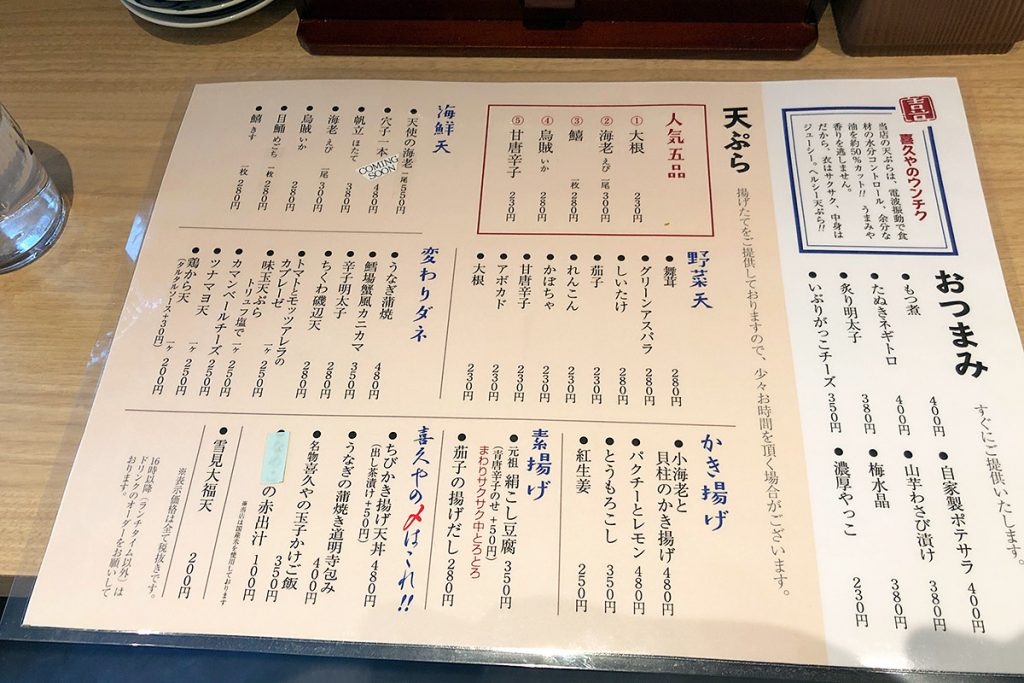 喜久や
喜久やのウンチク
当店の天ぷらは、電波振動で食
材の水分コントロール、余分な
油を約50%カット!!うまみや
香りを逃しません。
だから、衣はサクサク、中身は
ジューシー。ヘルシー天ぷら!!
おつまみ
すぐにご提供いたします。
●もつ煮 400円
●たぬきネギトロ 400円
●炙り明太子 380円
●いぶりがっこチーズ 350円
●自家製ポテサラ 400円
●山芋わさび漬け 380円
●梅水晶 380円
●濃厚やっこ 230円
天ぷら
揚げたてをご提供しておりますので、少々お時間を頂く場合がございます。
人気五品
①大根 230円
②海老 えび 一尾 300円
③鱚 一枚 280円
④烏賊 いか 280円
⑤甘唐辛子 230円
海鮮天
●天使の海老 一尾 550円
●穴子一本 480円
COMING SOON
●帆立 ほたて 380円
●海老 えび 一尾 300円
●烏賊 いか 280円
●目鯒 めごち 一枚 280円
●鱚 きす 一枚 280円
野菜天
●舞茸 280円
●グリーンアスパラ 280円
●しいたけ 280円
●茄子 230円
●れんこん 230円
●かぼちゃ 230円
●甘唐辛子 230円
●アボカド 230円
●大根 230円
変わりダネ
●うなぎ蒲焼 480円
●鱈場蟹風カニカマ 350円
●辛子明太子 350円
●ちくわ磯辺天 280円
●トマトとモッツアレラの
カプレーゼ 280円
●味玉天ぷら
トリュフ塩で 一ヶ 250円
●カマンベールチーズ 一ヶ 250円
●ツナマヨ天 250円
●鶏から天 一ヶ 200円
(タルタルソース+30円)
かき揚げ
●小海老と
貝柱のかき揚げ 480円
●パクチーとレモン 480円
●とうもろこし 350円
●紅生姜 250円
素揚げ
●元祖 絹こし豆腐 350円
(青唐辛子のせ +50円)
まわりサクサク中とろとろ
●茄子の揚げだし 280円
喜久やの〆はこれ!!
●ちびかき揚げ天丼 480円
(出し茶漬け+50円)
●うなぎの蒲焼き道明寺包み 400円
●名物喜久やの玉子かけご飯 350円
の赤出汁 100円
※当店は国産米を使用しております
●雪見大福天 200円
※表示価格は全て税抜きです。
16時以降(ランチタイム以外)は
ドリンクのオーダーをお願いして
おります。